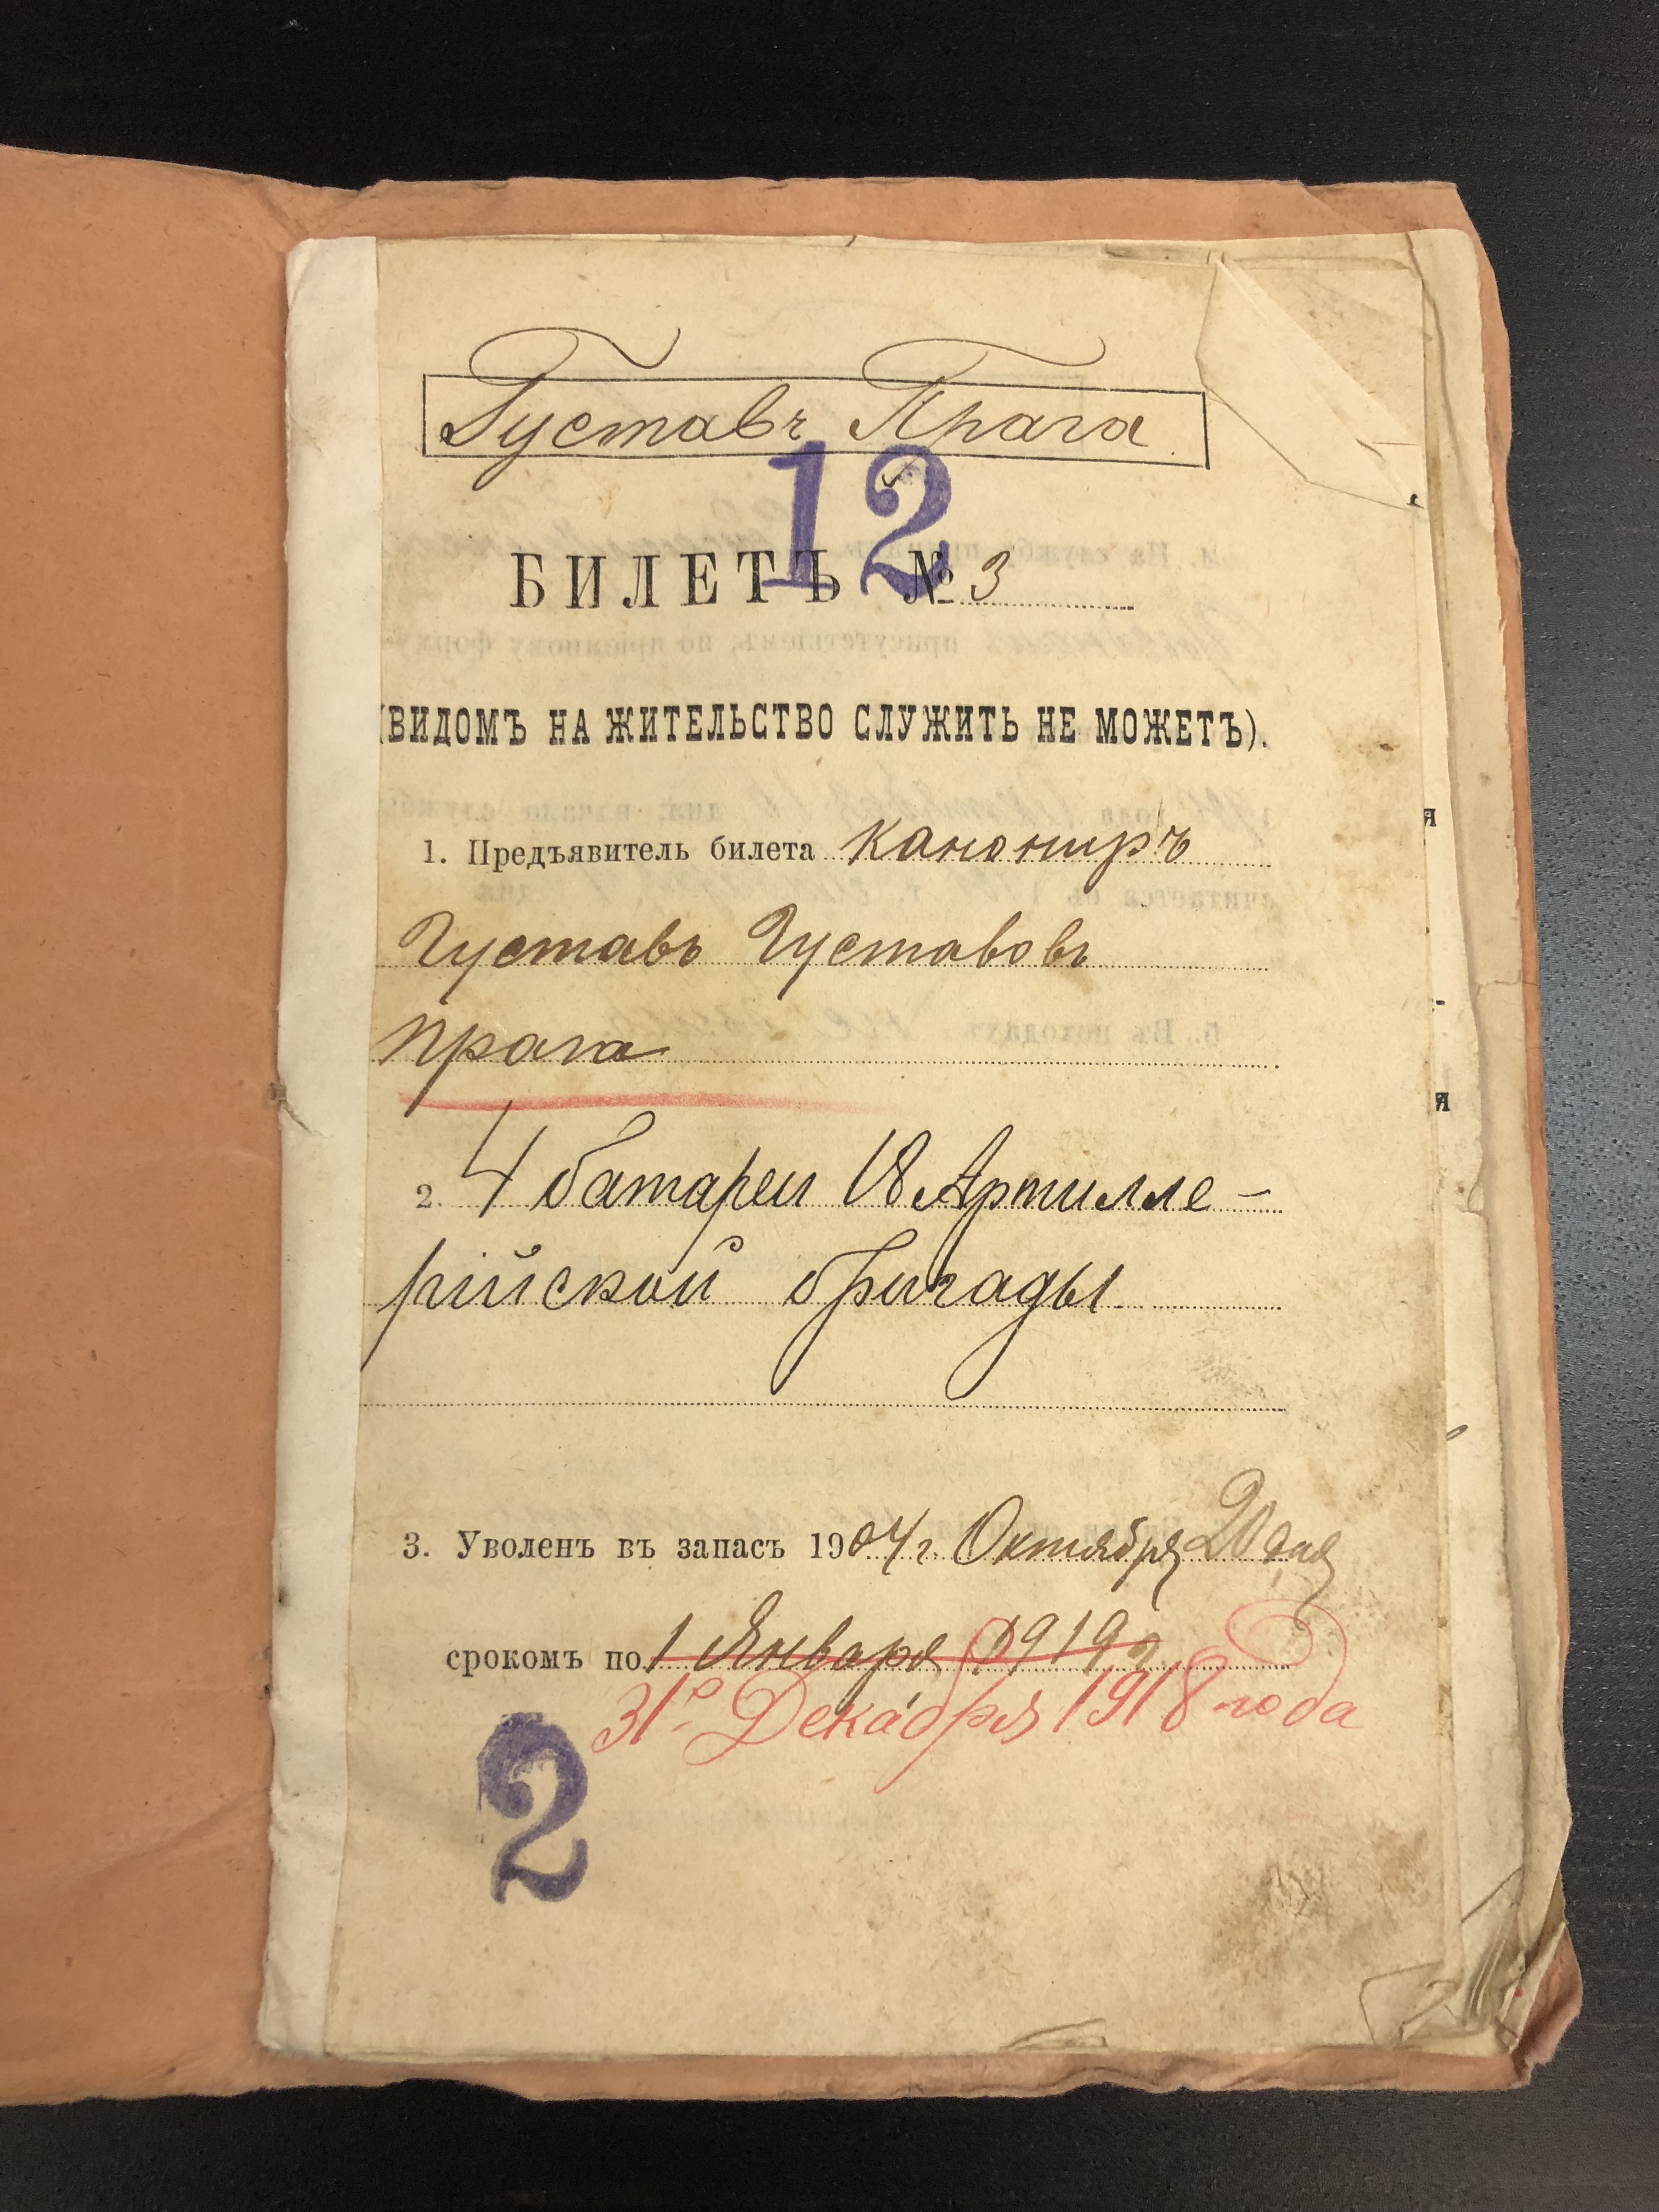 Густавъ Прага
12
БИЛЕТЪ № 3
(ВИДОМЪ НА ЖИТЕЛЬСТВО СЛУЖИТЬ НЕ МОЖЕТЪ).
1. Предъявитель билета канониръ
Густавъ Густавовъ
Прага
2. 4 батареи 18 Артилле-
рійской бригады
3. Уволенъ въ запасъ 1904 г. Октября 20 дня
срокомъ по 1 Января 1919 г
31го Декабря 1918 года
2